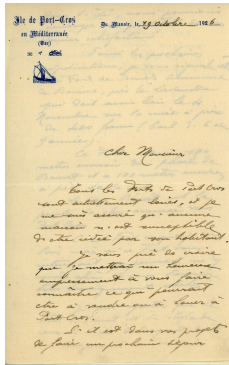 Ile de Port-Croz
en Méditerranée
(Var)
Du Manoir, le 29 octobre 1926
Cher Monsieur
Tous les forts de Port Cros
sont actuellement loués, et je
me suis assuré qu'aucune
maison n'est susceptible
d'être cédée par son habitant.
Je vous prie de croire
que je mettrai un heureux
empressement à vous faire
connaître ce qui pourrait
être à vendre ou à louer à
Port Cros.
S'il est dans vos projets
de faire un prochain séjour